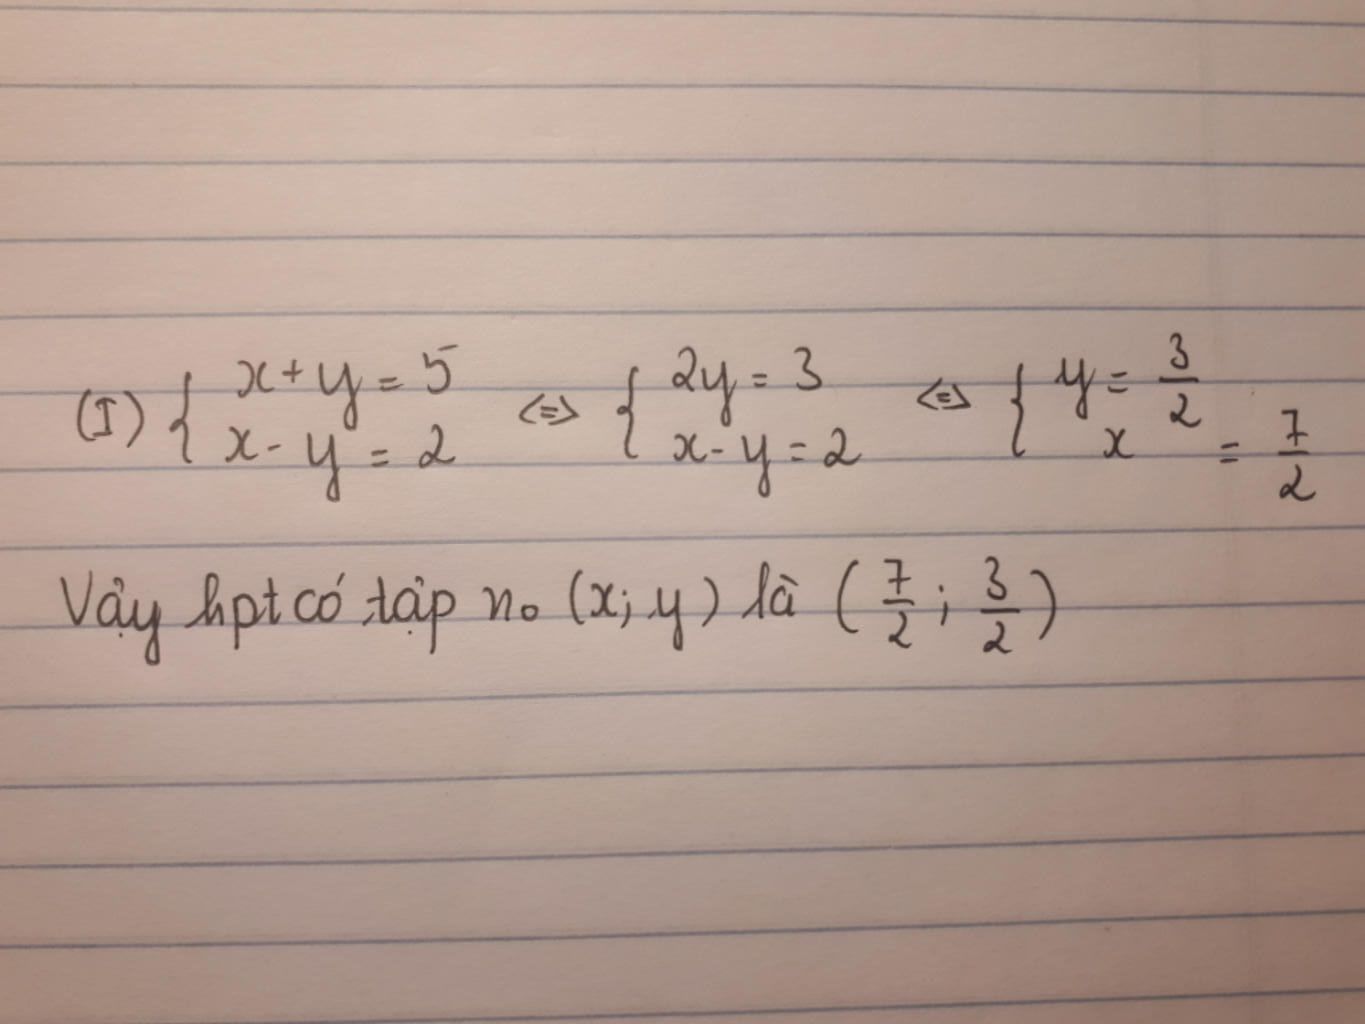 (I) { x + y = 5 <=> { 2y = 3 <=> { y = 3/2
x - y = 2 x - y = 2 x = 7/2
Vậy hpt có tập no (x; y) là (7/2; 3/2)